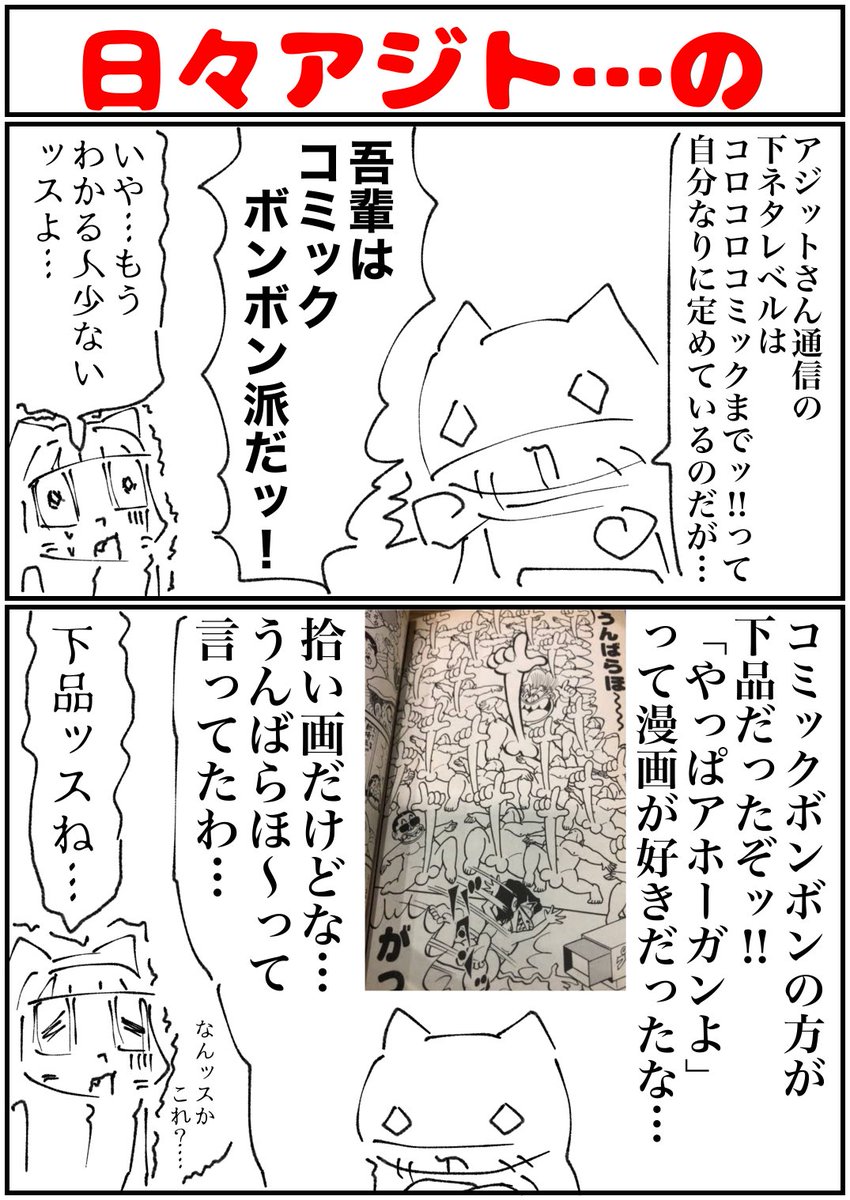 日々アジト…の
アジットさん通信の
下ネタレベルは
コロコロコミックまでッ!!って
自分なりに定めているのだが…
吾輩は
コミック
ボンボン派だッ!
いや…もう
わかる人少ない
ッスよ…
コミックボンボンの方が
下品だったぞッ!!
「やっぱアホーガンよ」
って漫画が好きだったな…
うんばらほ〜〜
がつ
拾い画だけどな…
うんばらほ〜って
言ってたわ…
下品ッスね…
なんッスか
これ?……